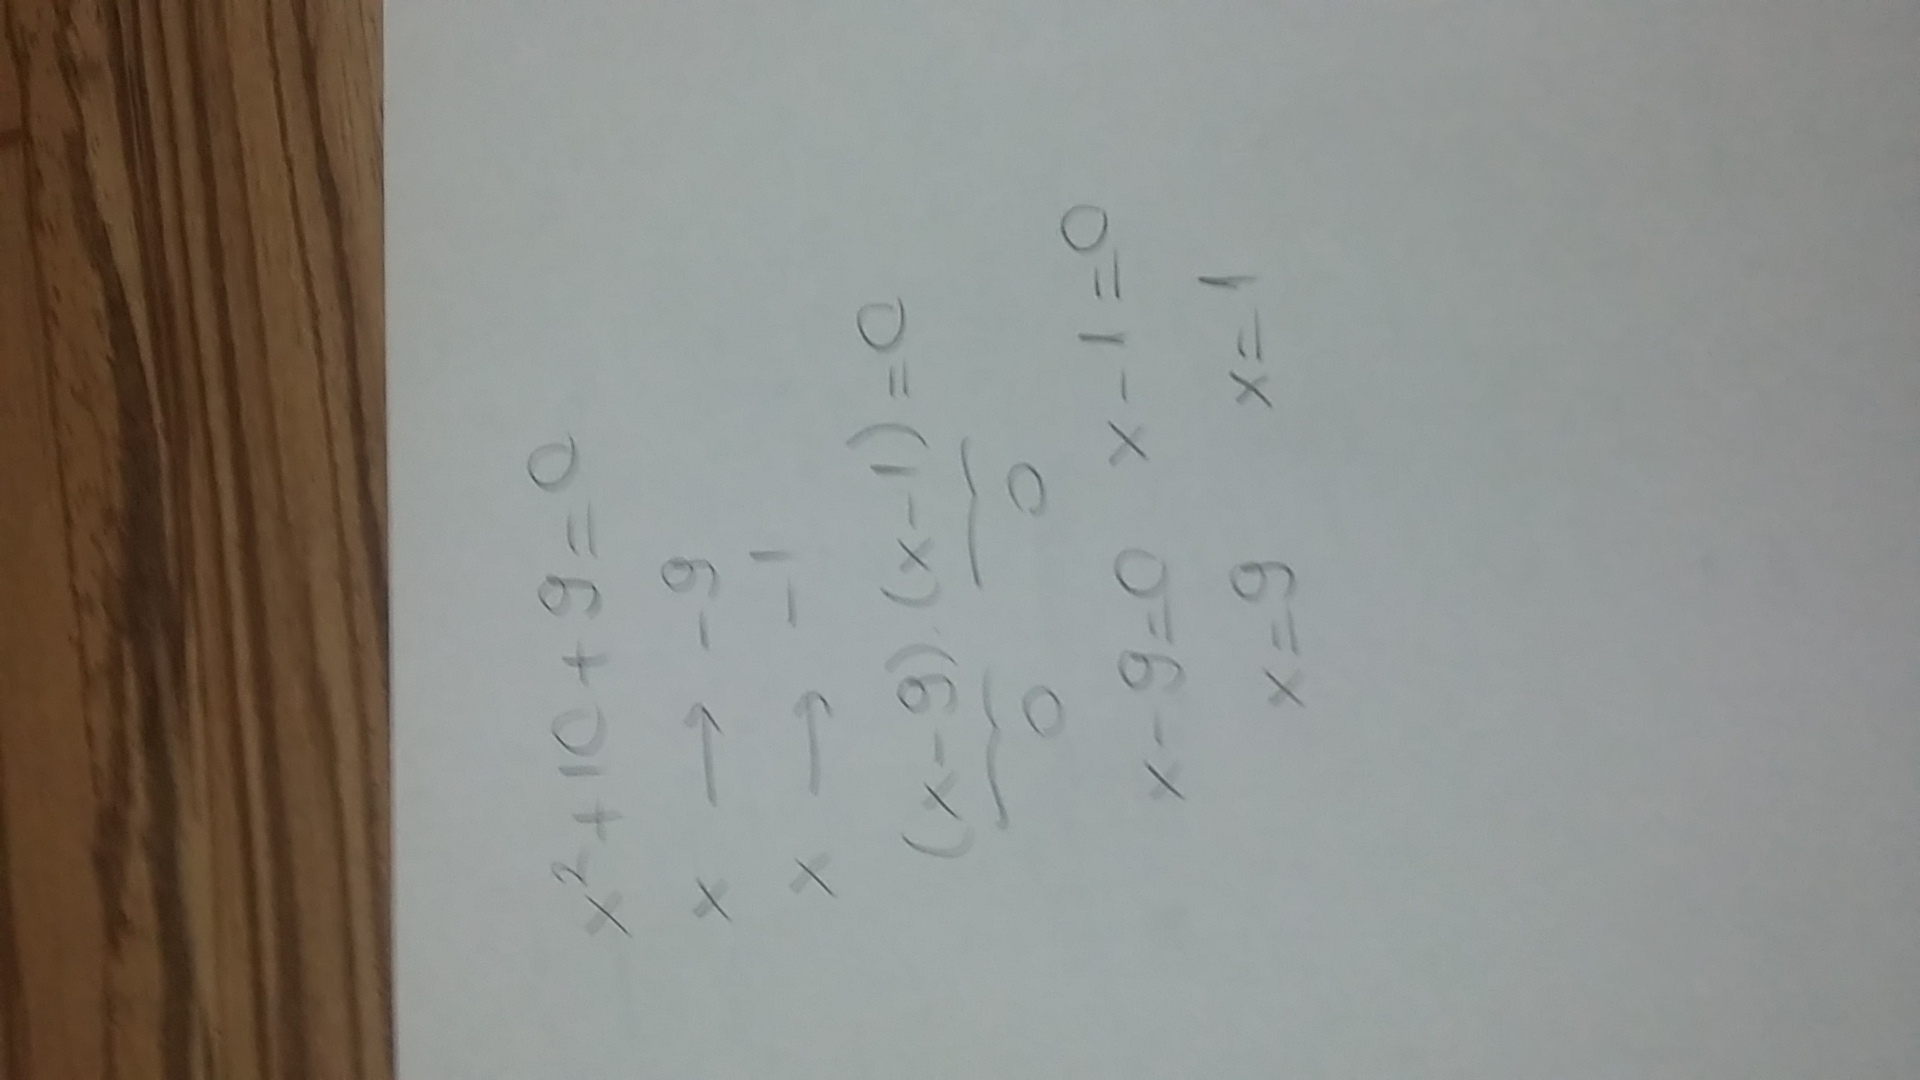 x²+10+9=0
x → -9
x → -1
(x-9).(x-1)=0
0 0
x-9=0 x-1=0
x=9 x=1